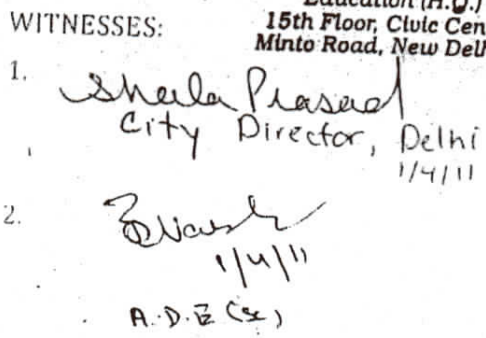 Education (H.Q.)
WITNESSES:
15th Floor, Civic Cen
Minto Road, New Delh
1.
Sheila Prasad
City Director, Delhi
1/4/11
2.
1/4/11
A.D.E (Sc)